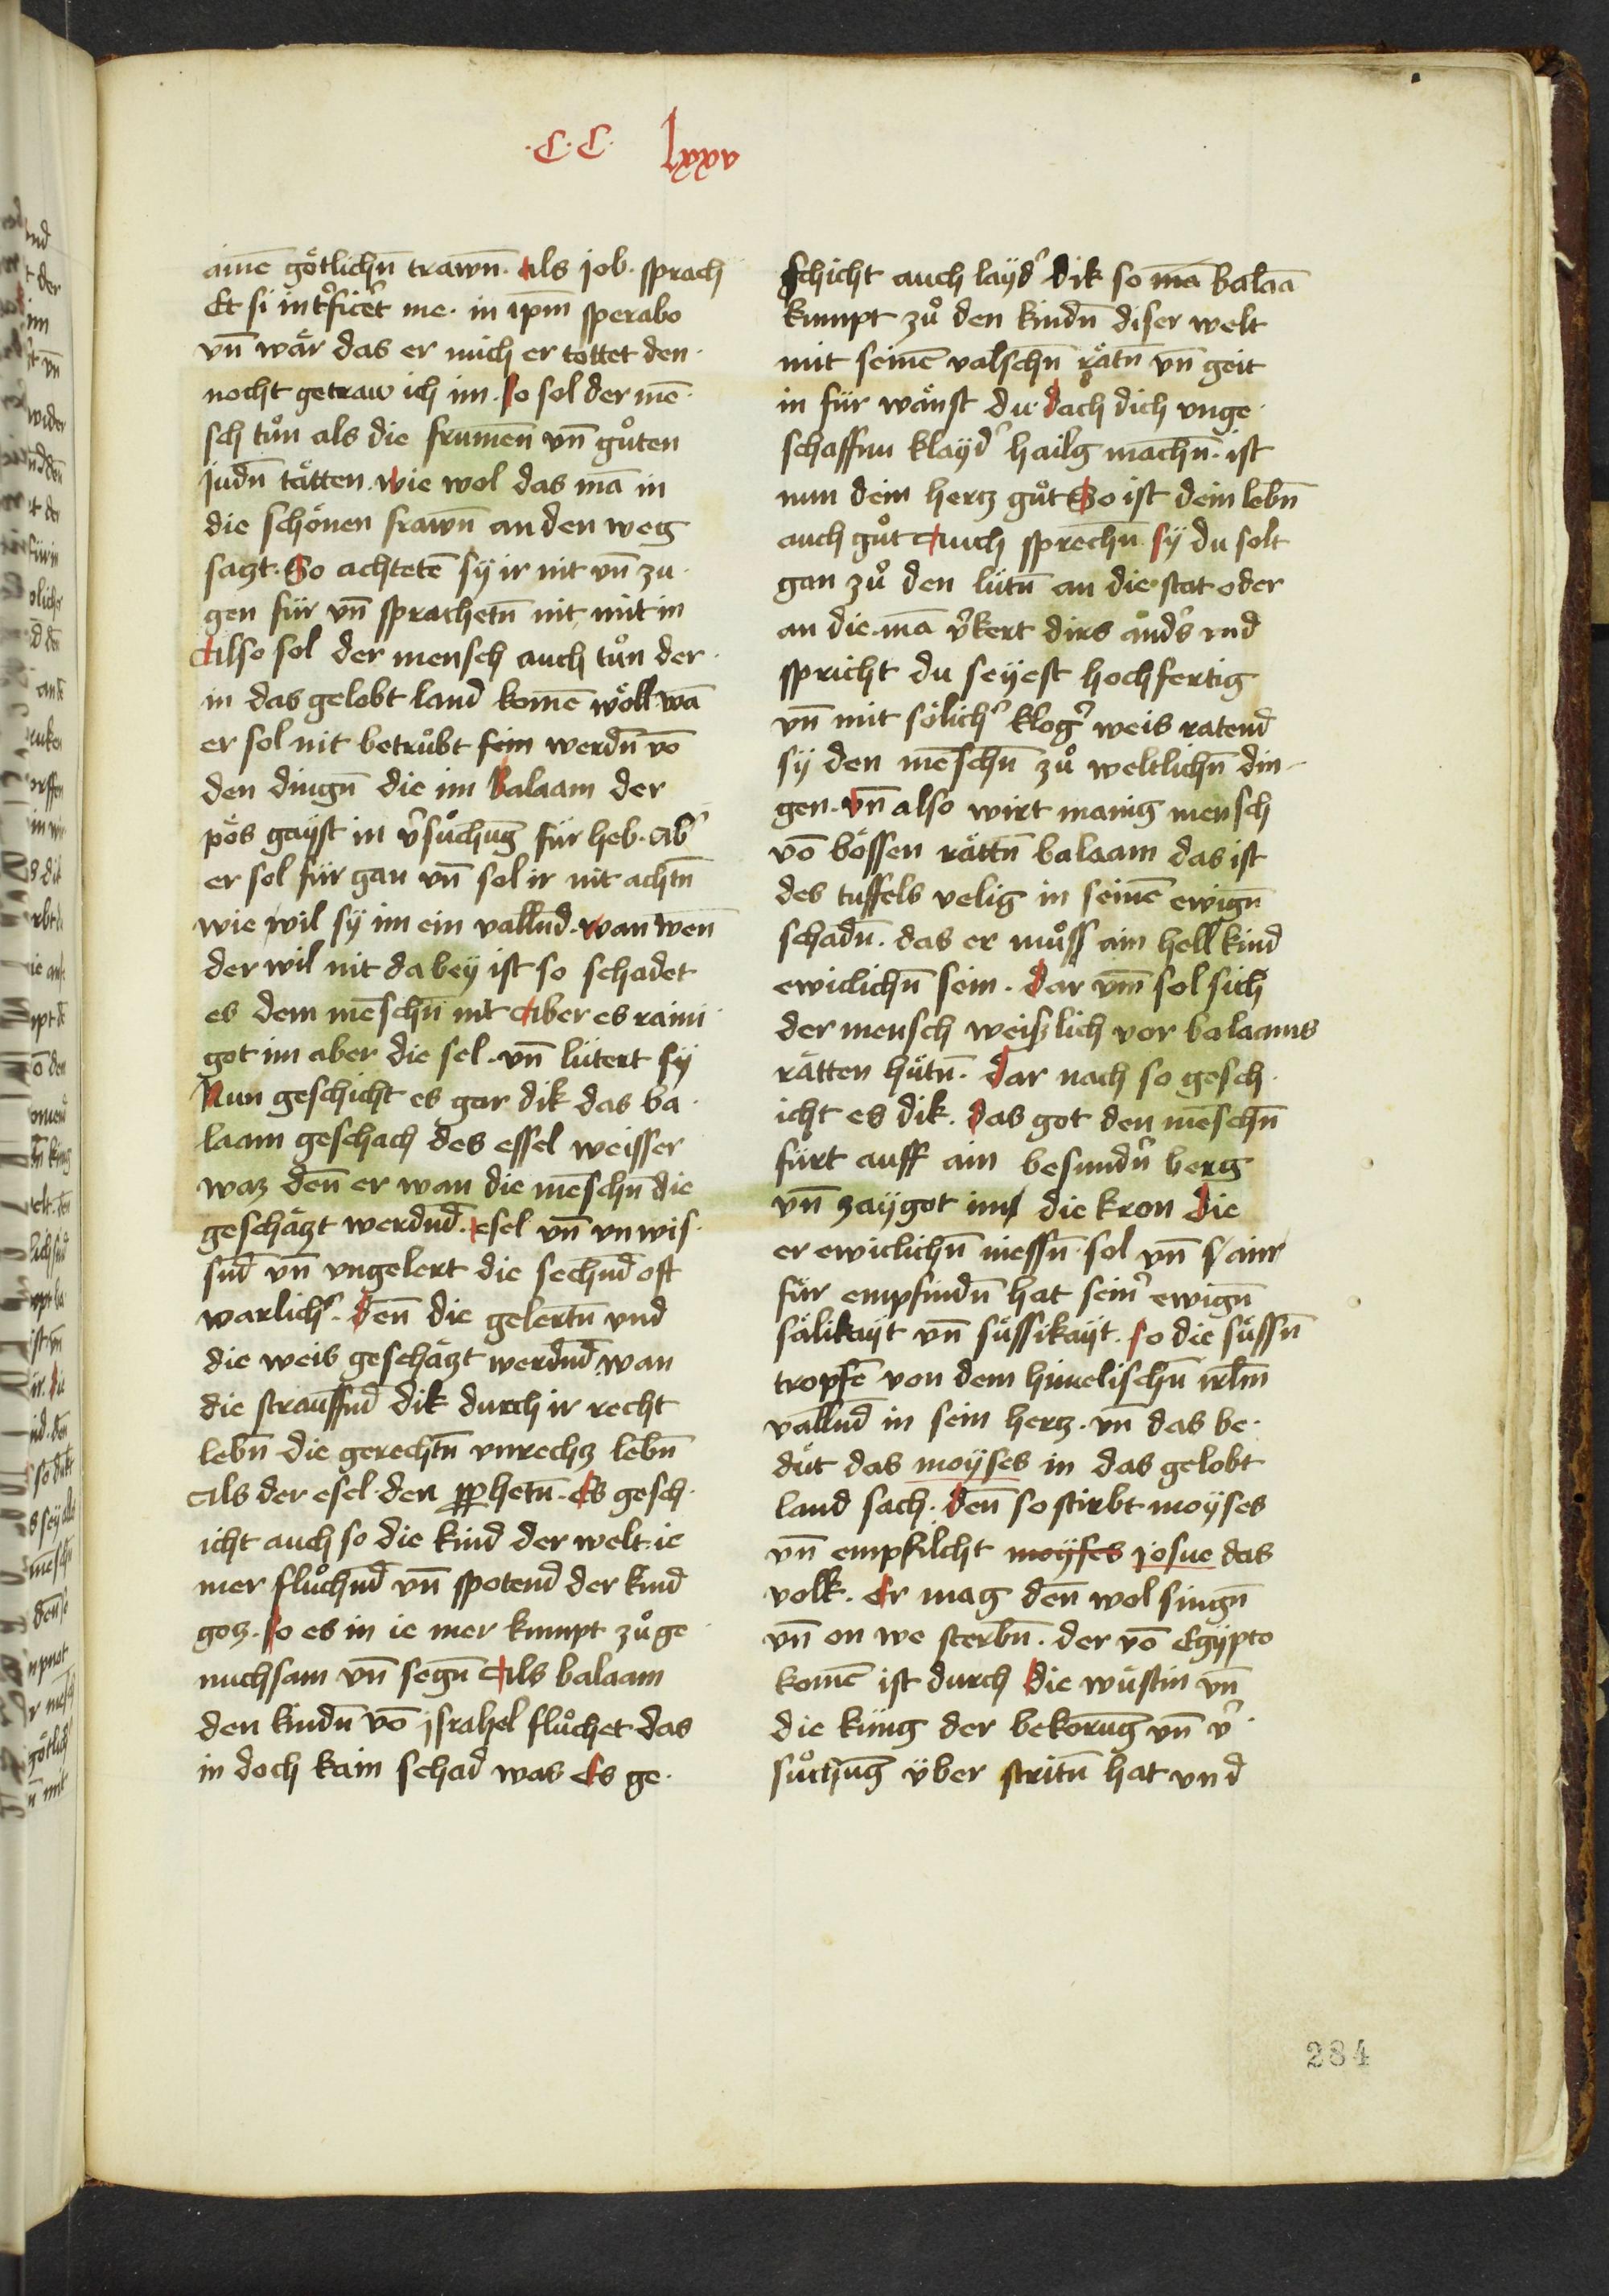 ·C·C· lxxv
aīnē götlichn̄ trawn̄. als Job. sprach
Et si int̓ficet̓ me. in ip̄m sperabo
vn̄ wär das er mich er tottet den·
nocht getraw ich im. so sol der mē·
sch tůn als die frumen̄ vn̄ gůten
Judn̄ tätten. wie wol das mā in
die schönen frawn̄ an den weg
sagt. So achtetē sÿ ir nit vn̄ zu·
gen für vn̄ sprachetn̄ nit mit in
Also sol der mensch auch tůn der·
in das gelobt land komē wöll wā
er sol nit betrůbt sein werdn̄ vō
den dingn̄ die im Balaam der
pös gaÿst in v̓sůchung für heb. Ab̓
er sol für gan vn̄ sol ir nit achtn̄
wie wil sÿ im ein vallnd̄. wan wen̄
der wil nit da beÿ ist so schadet
es dem mēschn̄ nit Aber es raini·
got im aber die sel. vn̄ lütert sÿ
Nun geschicht es gar dik das ba·
laam geschach des essel weisser
waz den̄ er wan die mēschn̄ die
geschätzt werdnd̄. esel vn̄ vnwis·
snd̄ vn̄ vngelert die sechnd̄ oft
warlich̓. den̄ die gelertn̄ vnd
die weis geschätzt werdnd̄. wan
die strauffnd̄ dik durch ir recht
lebn̄ die gerechtn̄ vnrechz lebn̄
als der esel. den pp̄hetn̄. Es gesch·
icht auch so die kind der welt ie
mer flůchnd̄ vn̄ spotend̄ der kind
gotz. so es in ie mer kumpt zů ge
nuchsam vn̄ segn̄ Als balaam
den kindn̄ vō jsrahel flůchet das
in doch kain schad was Es ge·
schicht auch laÿd̓ dik so mā balaā
kumpt zů den kindn̄ diser welt
mit seinē valschn̄ rätn̄ vn̄ geit
in für wänst du. dach dich vnge·
schaffnu klaÿd̓ hailg machn̄. ist
nun dein hertz gůt So ist dein lebn̄
auch gůt Auch sprechn̄ sÿ du solt
gan zů den lütn̄ an die stat oder
an die. mā v̓kert dirs ånd̓s vnd
spricht du seÿest hochfertig
vn̄ mit sölich̓ klog̓ weis ratend̄
sÿ den mēschn̄ zů weltlichn̄ din·
gen. vn̄ also wirt manig mensch
vō bössen rättn̄ balaam das ist
des tuffels velig in seinē ewign̄
schadn̄. das er můss ain hell kind
ewiclichn̄ sein. dar vm̄ sol sich
der mensch weißlich vor balaams
rätten hütn̄. dar nach so gesch·
icht es dik. das got den mēschn̄
fürt auff ain besundn̓ berg
vn̄ zaÿgot im die kron die
er ewiclichn̄ niessn̄ sol vn̄ ain
für empfindn̄ hat sein̓ ewign̄
sälikaÿt vn̄ süssikaÿt. so die süssn̄
tropfē von dem himelischn̄ irlm̄
vallnd̄ in sein hertz. vn̄ das be·
düt das moÿses in das gelobt
land sach. den̄ so stirbt moÿses
vn̄ empfilcht moÿses josue das
volk. Er mag den̄ wol singn̄
vn̄ on we sterbn̄. der vō Egÿpto
komē ist durch die wüstin vn̄
die küng der bekorūg vn̄ v̓·
sůchūg ÿber stritn̄ hat vnd
284